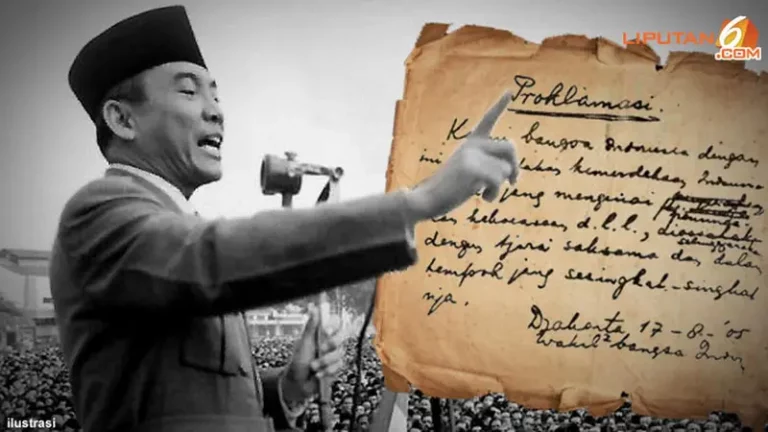 LIPUTAN 6
.COM
Proklamasi.
bangsa Indonesia dengan
ini kemerdekaan Indones
jang mengenai
kekoeasaan d.l.l., dioesahakan
diselenggarakan
dengan tjara saksama dan dalam
tempoh jang sesingkat-singkat
nja.
Djakarta 17-8-'05
Wakil2 bangsa Indon
ilustrasi